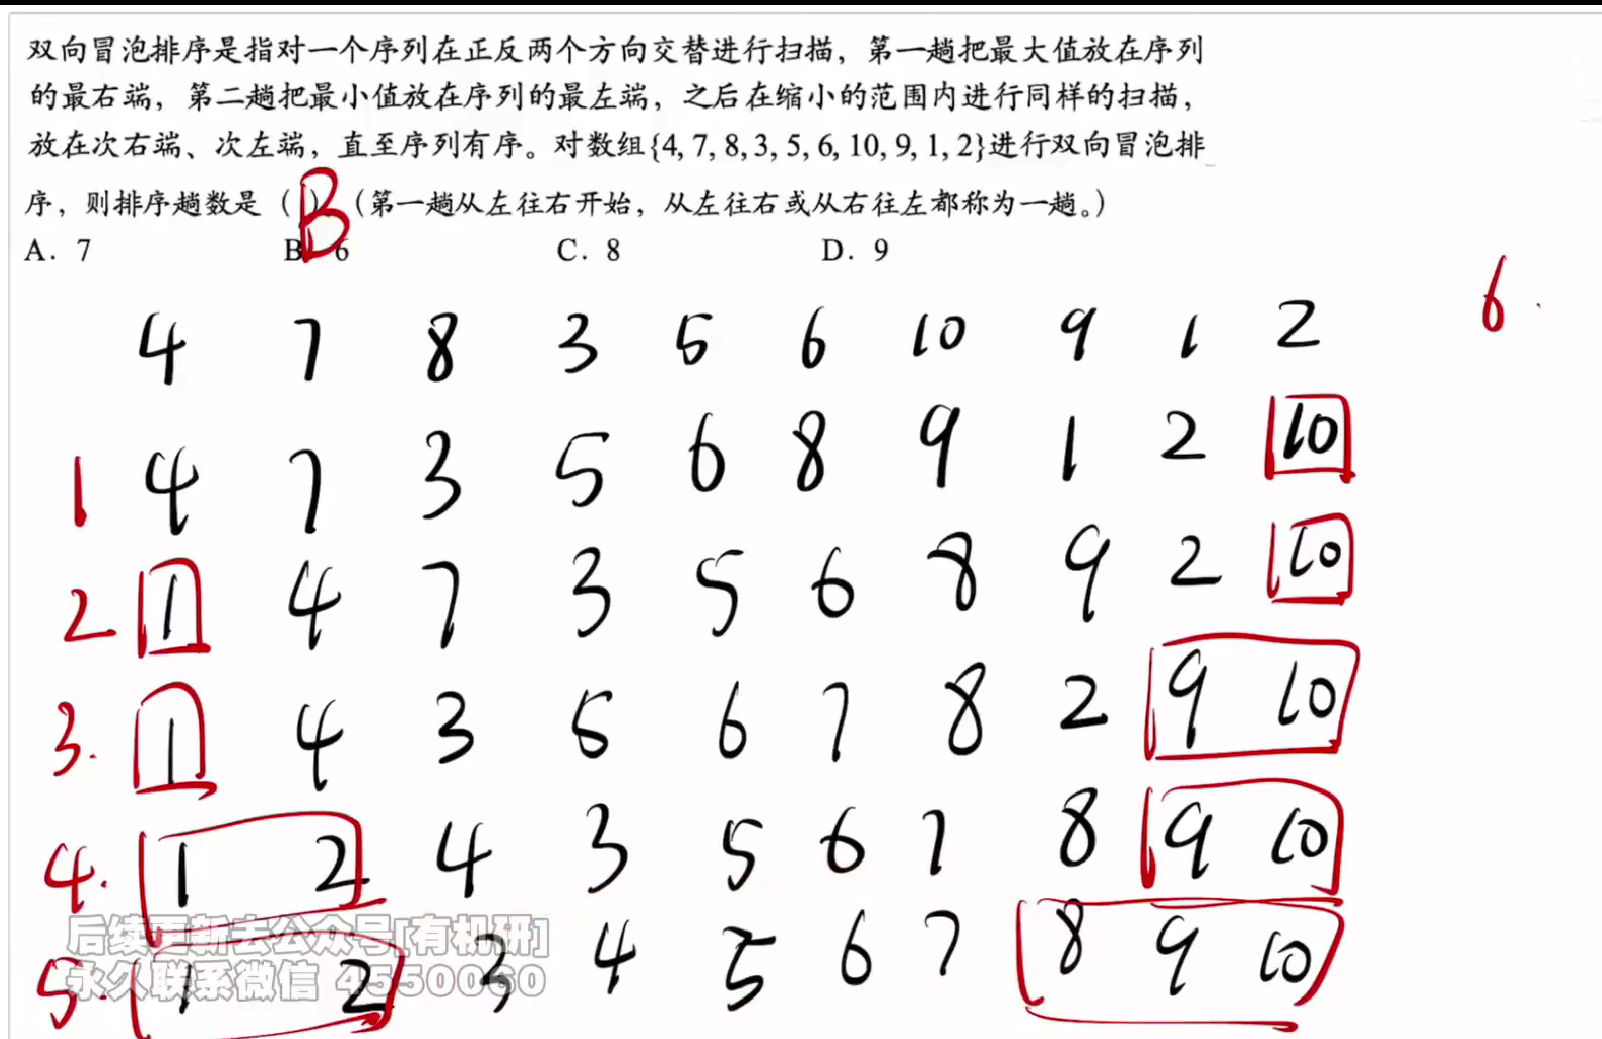 双向冒泡排序是指对一个序列在正反两个方向交替进行扫描，第一趟把最大值放在序列
的最右端，第二趟把最小值放在序列的最左端，之后在缩小的范围内进行同样的扫描，
放在次右端、次左端，直至序列有序。对数组{4, 7, 8, 3, 5, 6, 10, 9, 1, 2}进行双向冒泡排
序，则排序趟数是（B）（第一趟从左往右开始，从左往右或从右往左都称为一趟。）
A. 7 B. 6 C. 8 D. 9
6.
4 7 8 3 5 6 10 9 1 2
1 4 7 3 5 6 8 9 1 2 10
2 1 4 7 3 5 6 8 9 2 10
3. 1 4 3 5 6 7 8 2 9 10
4. 1 2 4 3 5 6 7 8 9 10
5. 1 2 3 4 5 6 7 8 9 10
后续更新去公众号[有机研]
永久联系微信 4550060